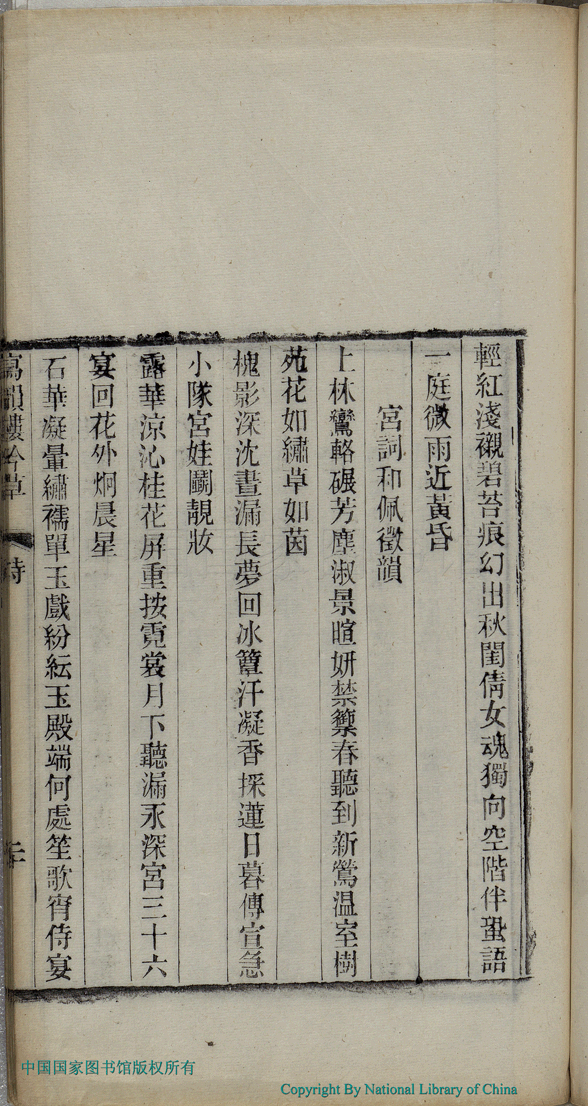 輕紅淺襯碧苔痕幻出秋閨倩女魂獨向空階伴蛩語
一庭微雨近黃昏
宮詞和佩徵韻
上林鸞輅碾芳塵淑景暄妍禁籞春聽到新鶯溫室樹
苑花如繡草如茵
槐影深沈晝漏長夢回冰簟汗凝香採蓮日暮傳宣急
小隊宮娃鬭靚妝
露華涼沁桂花屏重按霓裳月下聽漏永深宮三十六
宴回花外炯晨星
石華凝暈繡襦單玉戲紛紜玉殿端何處笙歌宵侍宴
寫韻樓吟草 詩
中国国家图书馆版权所有
Copyright By National Library of China